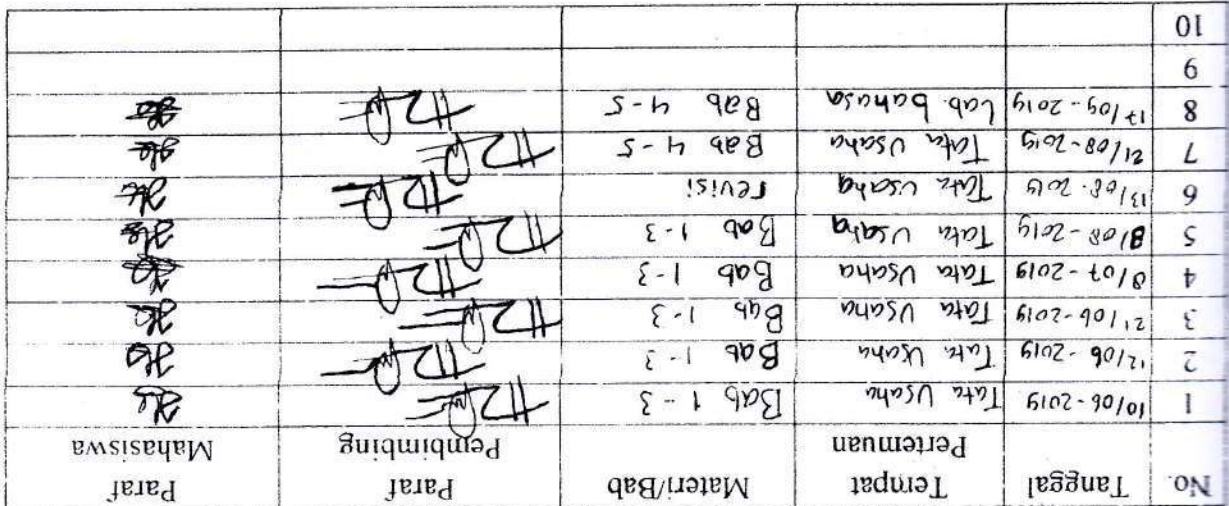 No. Tanggal Tempat Pertemuan Materi/Bab Paraf Pembimbing Paraf Mahasiswa
1 10/06-2019 Tata Usaha Bab 1-3
2 12/06-2019 Tata Usaha Bab 1-3
3 21/06-2019 Tata Usaha Bab 1-3
4 8/07-2019 Tata Usaha Bab 1-3
5 8/08-2019 Tata Usaha Bab 1-3
6 13/08-2019 Tata Usaha revisi
7 21/08-2019 Tata Usaha Bab 4-5
8 17/09-2019 Lab. bahasa Bab 4-5
9
10